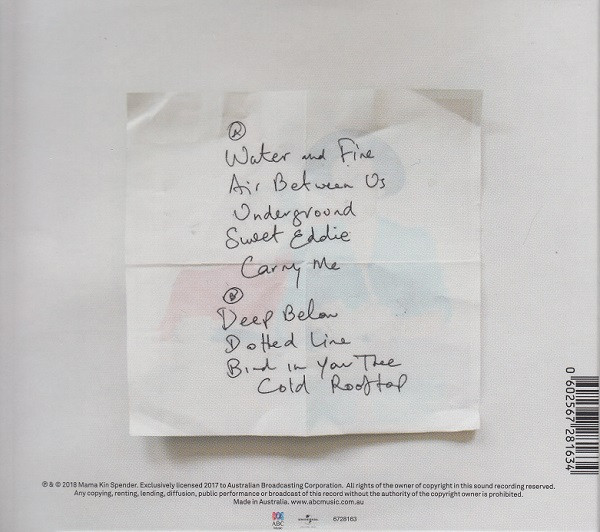 Ⓐ
Water and Fire
Air Between Us
Underground
Sweet Eddie
Carry Me
Ⓑ
Deep Below
Dotted Line
Bird in Your Tree
Cold Rooftop
0 602567 281634
℗ & © 2018 Mama Kin Spender. Exclusively licensed 2017 to Australian Broadcasting Corporation. All rights of the owner of copyright in this sound recording reserved.
Any copying, renting, lending, diffusion, public performance or broadcast of this record without the authority of the copyright owner is prohibited.
Made in Australia. www.abcmusic.com.au
ABC
Music
UNIVERSAL
6728163